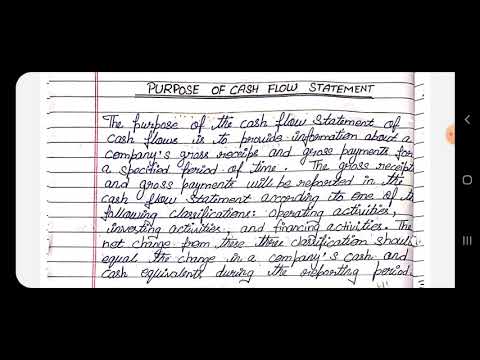 PURPOSE OF CASH FLOW STATEMENT
The purpose of the cash flow statement of
cash flows is to provide information about a
company's gross receips and gross payments for
a specified period of time. The gross receipt
and gross payments will be reported in the
cash flow statement according to one of th
following classifications: operating activities,
inverting activities, and financing activities. The
net change from these three classification should
equal the change in a company's cash and
cash equivalents during the reporting period.